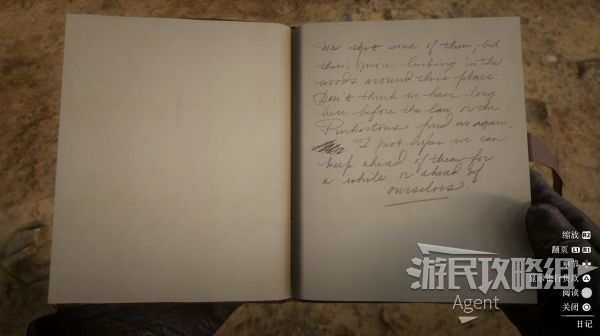 We shot some of them, but
there's more lurking in the
woods around this place.
Don't think we have long
here before the law or the
Pinkertons find us again.
I just hope we can
keep ahead of them for
a while or ahead of
ourselves.
缩放 R2
翻页 L1 R1
阅读
关闭
日记
游民攻略组
Agent